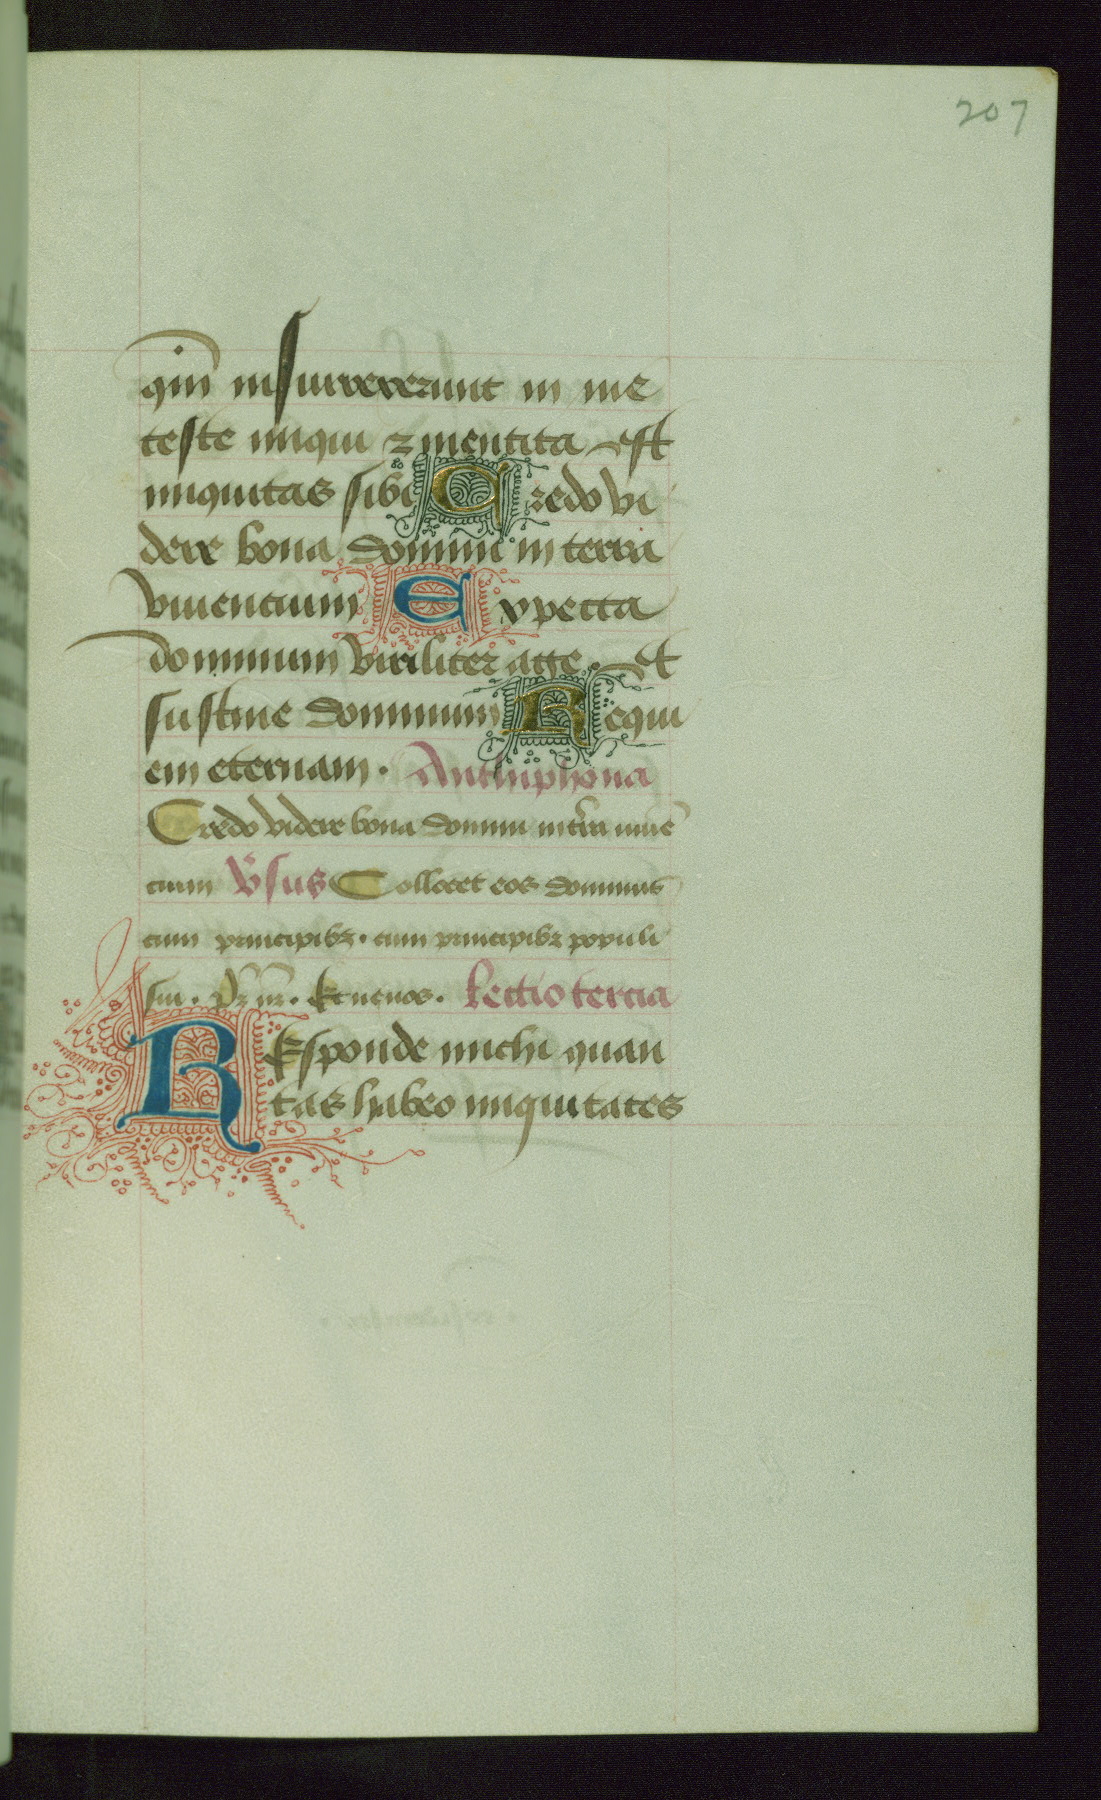 207
qm̄ insurrexerunt in me
teste iniqui ⁊ mentita est
iniquitas sibi Credo vi
dere bona domini in terra
viuentium Expecta
dominum viriliter age. et
sustine dominum Requi
em eternam. Anthiphona
Credo videre bona domini in tr̄a viuē
cium V̄sus Collocet eos dominus
cum principibꝫ. cum principibꝫ populi
sui. Pr̄ nr̄. Et ne nos. Lectio tercia
REsponde michi quan
tas habeo iniquitates